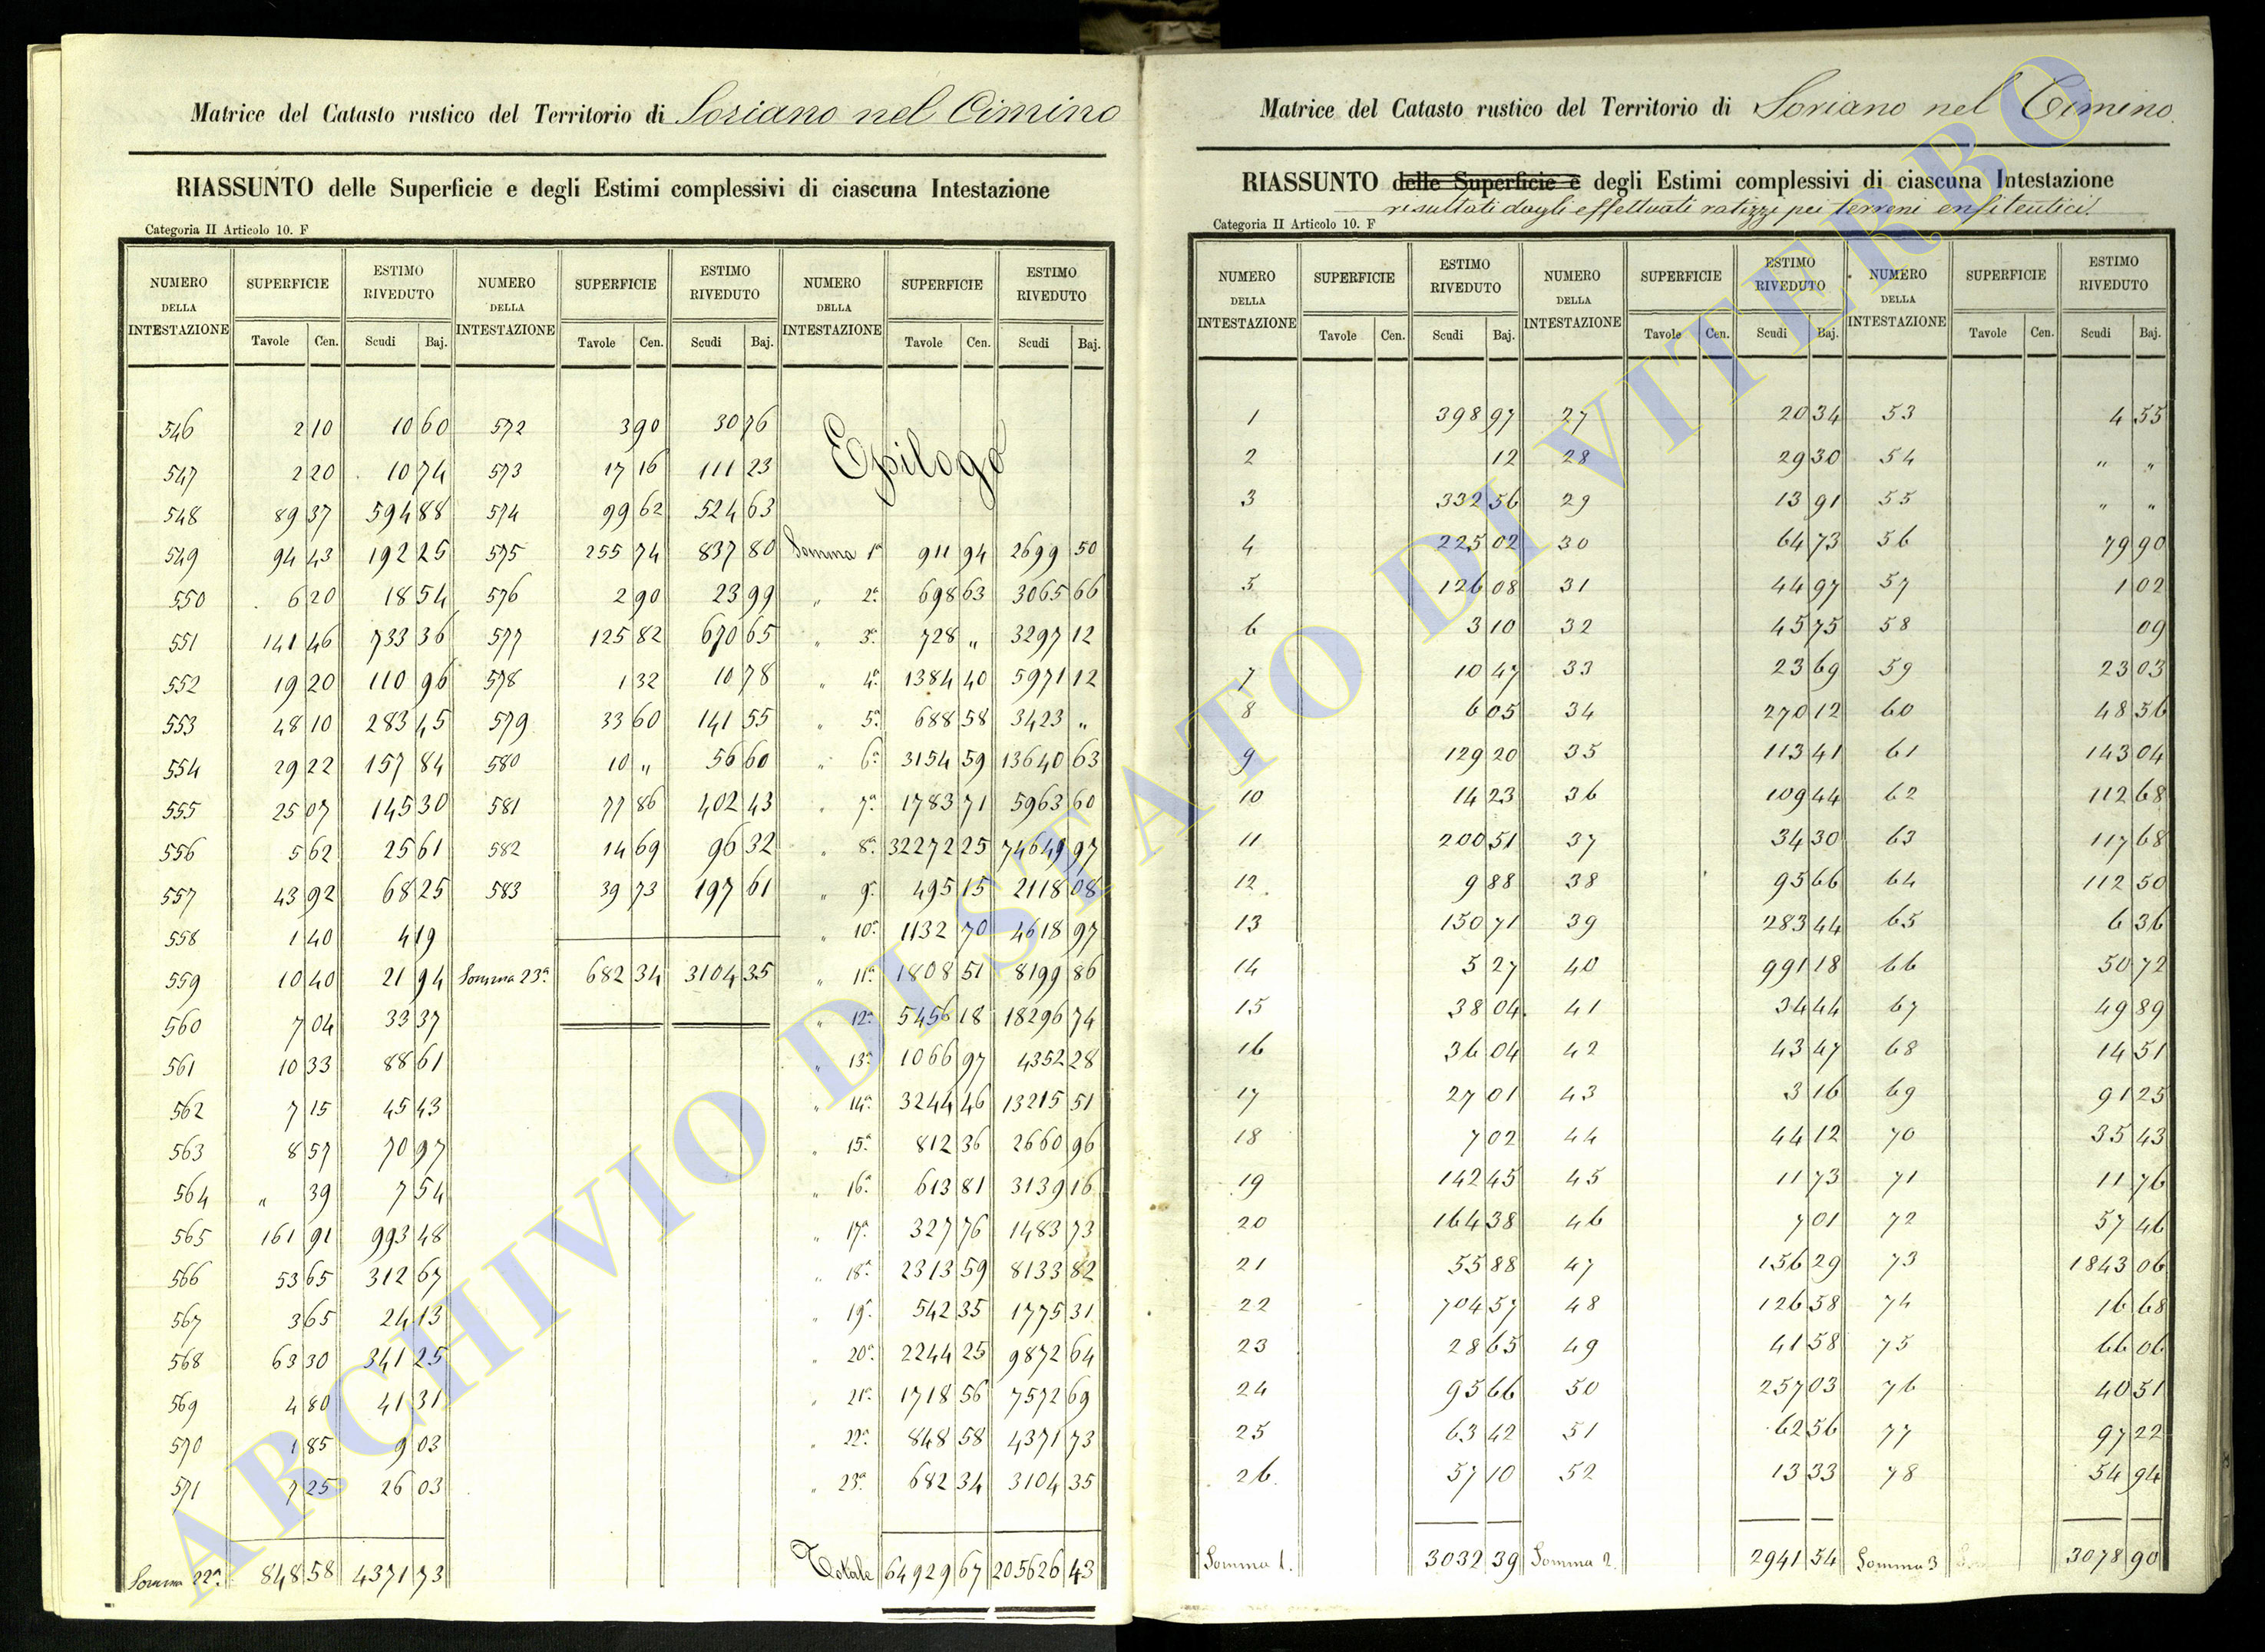 Matrice del Catasto rustico del Territorio di Soriano nel Cimino
RIASSUNTO delle Superficie e degli Estimi complessivi di ciascuna Intestazione
Categoria II Articolo 10. F
NUMERO DELLA INTESTAZIONE SUPERFICIE ESTIMO RIVEDUTO NUMERO DELLA INTESTAZIONE SUPERFICIE ESTIMO RIVEDUTO NUMERO DELLA INTESTAZIONE SUPERFICIE ESTIMO RIVEDUTO
Tavole Cen. Scudi Baj. Tavole Cen. Scudi Baj. Tavole Cen. Scudi Baj.
546 2 10 10 60 572 3 90 30 76 Epilogo
547 2 20 10 74 573 17 16 111 23
548 89 37 594 88 574 99 62 524 63
549 94 43 192 25 575 255 74 837 80 Somma 1ª 911 94 2699 50
550 6 20 18 54 576 2 90 23 99 " 2ª 698 63 3065 66
551 141 46 733 36 577 125 82 670 65 " 3ª 728 " 3297 12
552 19 20 110 96 578 1 32 10 78 " 4ª 1384 40 5971 12
553 48 10 283 45 579 33 60 141 55 " 5ª 688 58 3423 "
554 29 22 157 84 580 10 " 56 60 " 6ª 3154 59 13640 63
555 25 07 145 30 581 77 86 402 43 " 7ª 1783 71 5963 60
556 5 62 25 61 582 14 69 96 32 " 8ª 32272 25 74649 97
557 43 92 68 25 583 39 73 197 61 " 9ª 495 15 2118 08
558 1 40 4 19 " 10ª 1132 70 4618 97
559 10 40 21 94 Somma 23ª 682 34 3104 35 " 11ª 1808 51 8199 86
560 7 04 33 37 " 12ª 5456 18 18296 74
561 10 33 88 61 " 13ª 1066 97 4352 28
562 7 15 45 43 " 14ª 3244 46 13215 51
563 8 57 70 97 " 15ª 812 36 2660 96
564 " 39 7 54 " 16ª 613 81 3139 16
565 161 91 993 48 " 17ª 327 76 1483 73
566 53 65 312 67 " 18ª 2313 59 8133 82
567 3 65 24 13 " 19ª 542 35 1775 31
568 63 30 341 25 " 20ª 2244 25 9872 64
569 4 80 41 31 " 21ª 1718 56 7572 69
570 1 85 9 03 " 22ª 848 58 4371 73
571 7 25 26 03 " 23ª 682 34 3104 35
Somma 22ª 848 58 4371 73 Totale 64929 67 205626 43
Matrice del Catasto rustico del Territorio di Soriano nel Cimino.
RIASSUNTO delle Superficie e degli Estimi complessivi di ciascuna Intestazione
risultati dagli effettuati ratizzi pei terreni enfiteutici.
Categoria II Articolo 10. F
NUMERO DELLA INTESTAZIONE SUPERFICIE ESTIMO RIVEDUTO NUMERO DELLA INTESTAZIONE SUPERFICIE ESTIMO RIVEDUTO NUMERO DELLA INTESTAZIONE SUPERFICIE ESTIMO RIVEDUTO
Tavole Cen. Scudi Baj. Tavole Cen. Scudi Baj. Tavole Cen. Scudi Baj.
1 398 97 27 20 34 53 4 55
2 12 28 29 30 54 " "
3 332 56 29 13 91 55 " "
4 225 02 30 64 73 56 79 90
5 126 08 31 44 97 57 1 02
6 3 10 32 45 75 58 09
7 10 47 33 23 69 59 23 03
8 6 05 34 270 12 60 48 56
9 129 20 35 113 41 61 143 04
10 14 23 36 109 44 62 112 68
11 200 51 37 34 30 63 117 68
12 9 88 38 95 66 64 112 50
13 150 71 39 283 44 65 6 36
14 5 27 40 991 18 66 50 72
15 38 04 41 34 44 67 49 89
16 36 04 42 43 47 68 14 51
17 27 01 43 3 16 69 91 25
18 7 02 44 44 12 70 35 43
19 142 45 45 11 73 71 11 76
20 164 38 46 7 01 72 57 46
21 55 88 47 156 29 73 1843 06
22 704 57 48 126 58 74 16 68
23 28 65 49 41 58 75 66 06
24 95 66 50 257 03 76 40 51
25 63 42 51 62 56 77 97 22
26 57 10 52 13 33 78 54 94
Somma 1. 3032 39 Somma 2. 2941 54 Somma 3 3078 90
ARCHIVIO DI STATO DI VITERBO